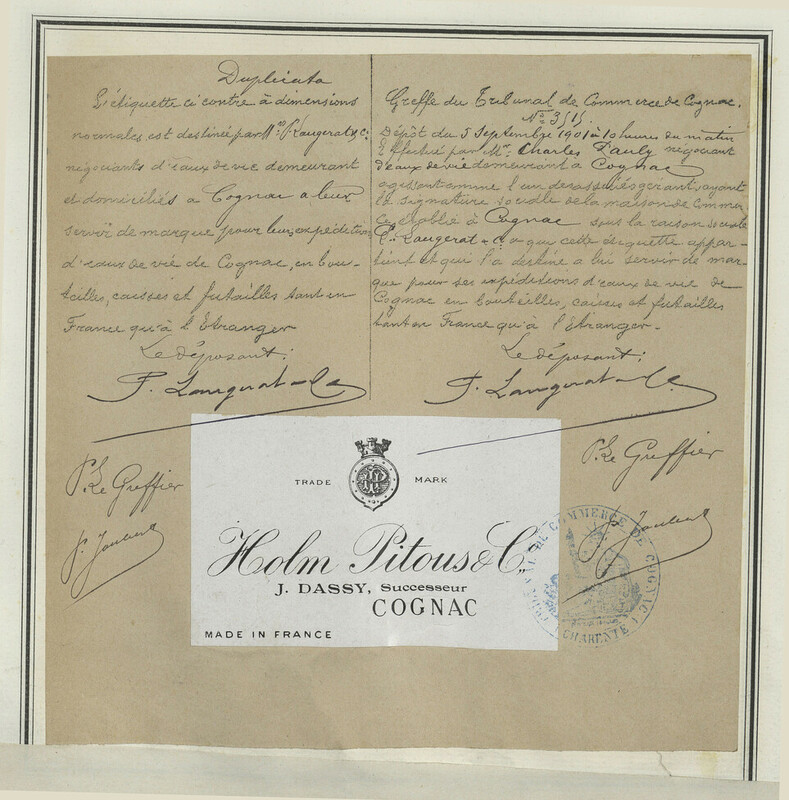 Duplicata
L'étiquette ci contre à dimensions
normales est destinée par Mrs P. Laugerat & Cie
négociants d'eaux de vie demeurant
et domiciliés à Cognac a leur
servir de marque pour leurs expéditions
d'eaux de vie de Cognac, en bou-
teilles, caisses et futailles tant en
France qu'à l'Etranger
Le déposant:
P. Laugerat & Co
P. Le Greffier
P. Joubert
Greffe du Tribunal de Commerce de Cognac.
No 3515.
Dépôt du 5 Septembre 1901 à 10 heures du matin
Effectué par Mr. Charles Pauly négociant
d'eaux de vie demeurant à Cognac
agissant comme l'un des associés gérant, ayant
la signature sociale de la maison de Commer-
ce établie à Cognac sous la raison sociale
P. Laugerat & Co que cette étiquette appar-
tient et qui l'a destine a lui servir de mar-
que pour ses expéditions d'eaux de vie de
Cognac en bouteilles, caisses et futailles
tant en France qu'à l'Etranger.
Le déposant:
P. Laugerat & Co.
P. Le Greffier
P. Joubert
TRADE MARK
Holm Pitous & Co.
J. DASSY, Successeur
COGNAC
MADE IN FRANCE
TRIBUNAL DE COMMERCE DE COGNAC
CHARENTE